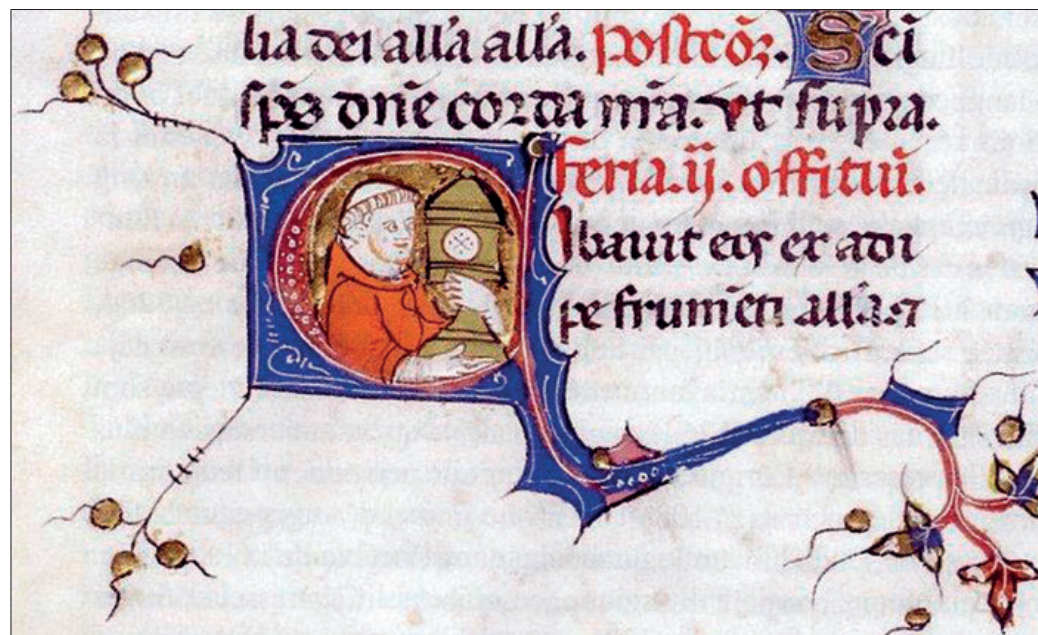 lia dei all'a all'a. postcō2. Sc̄i
sp̄s dn̄e corda nr̄a. vt supra.
feria. ij. offitiū.
Cibavit eos ex adi
pe frum̄eti all'a. ⁊